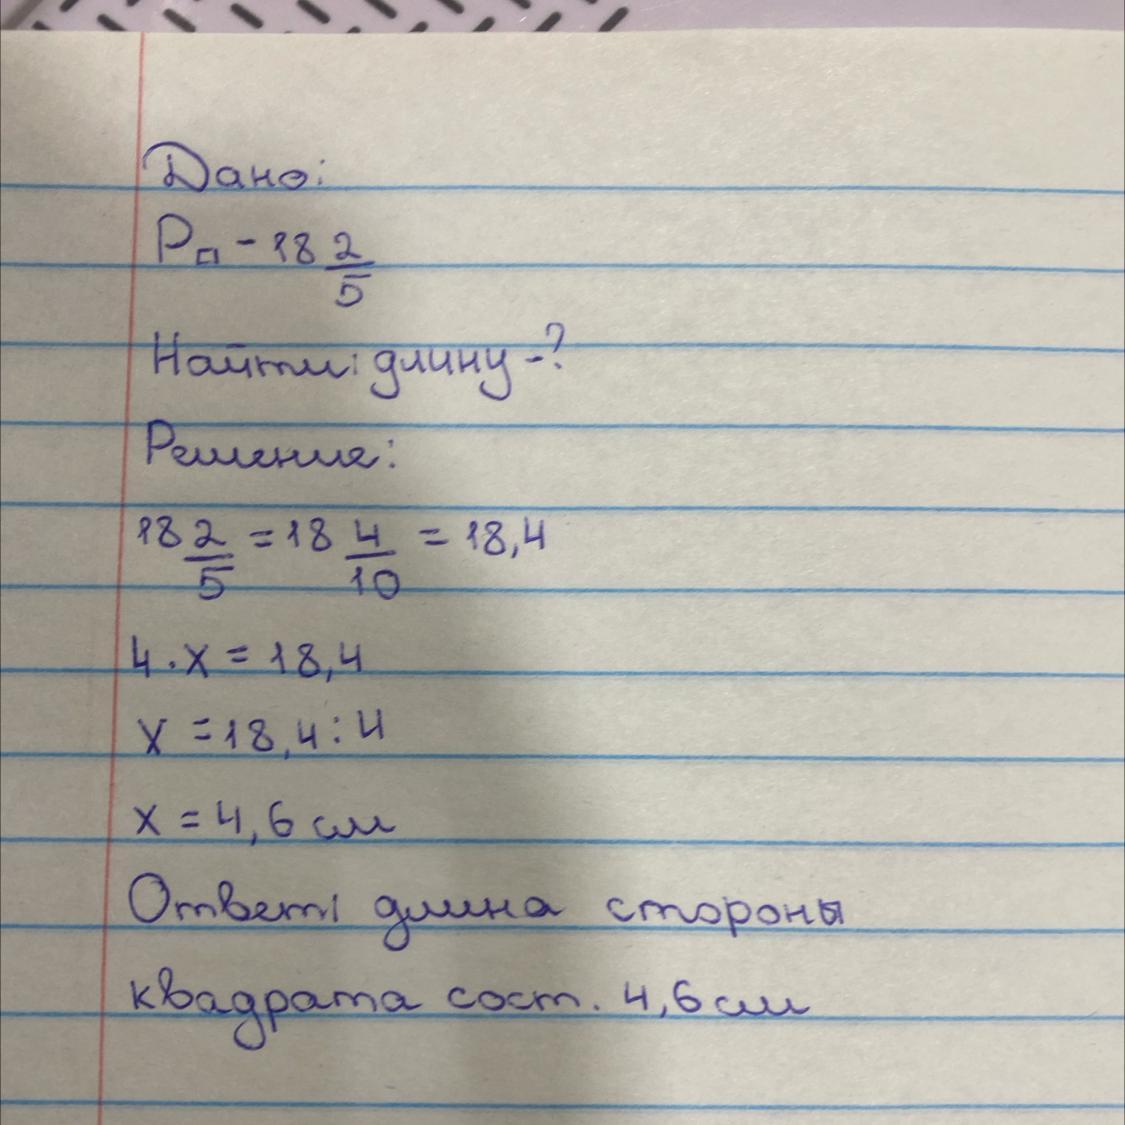 Дано:
P□ - 18 2/5
Найти: длину -?
Решение:
18 2/5 = 18 4/10 = 18,4
4 · x = 18,4
x = 18,4 : 4
x = 4,6 см
Ответ: длина стороны
квадрата сост. 4,6 см